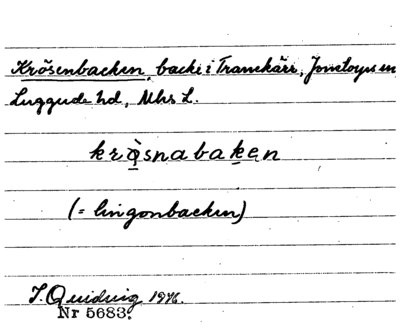 Krösenbacken, backe i Tranekärr, Jonstorps sn
Luggude hd, Mhs L.
kròsnabaken
(= lingonbacken)
J. Quidvig 1976.
Nr 5683.